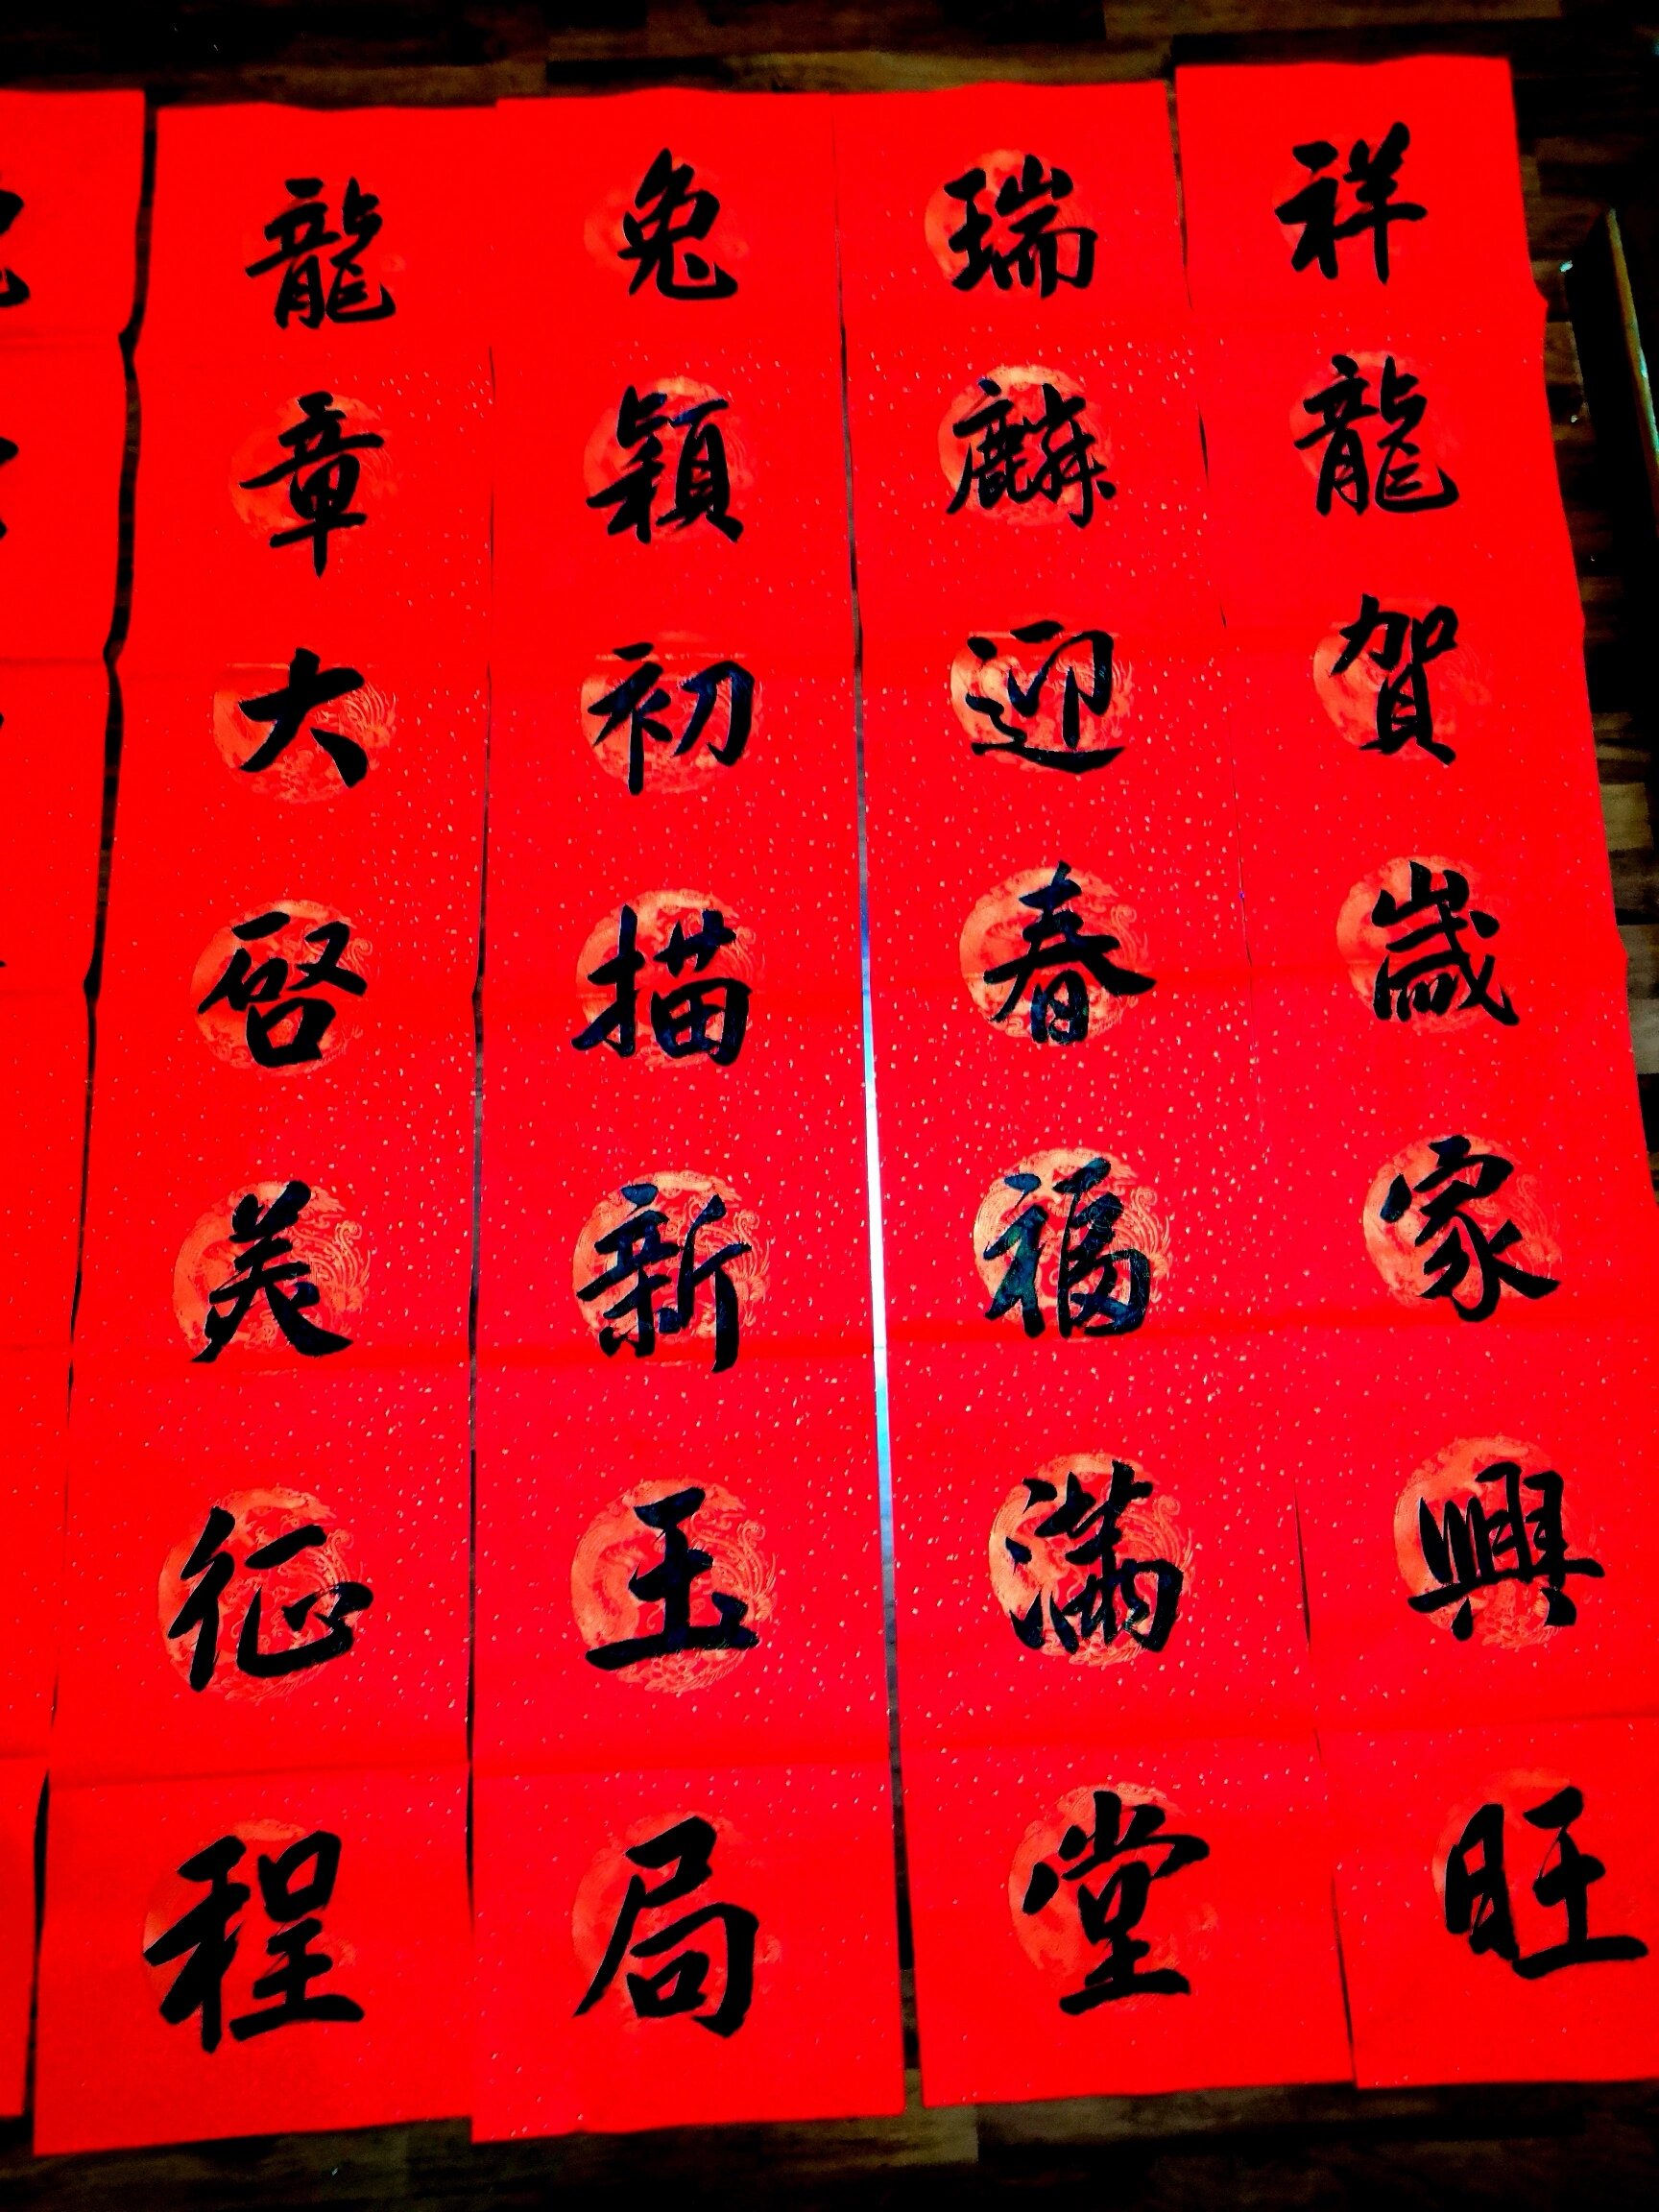 祥龍賀歲家興旺
瑞麟迎春福滿堂
兔穎初描新玉局
龍章大啓美征程